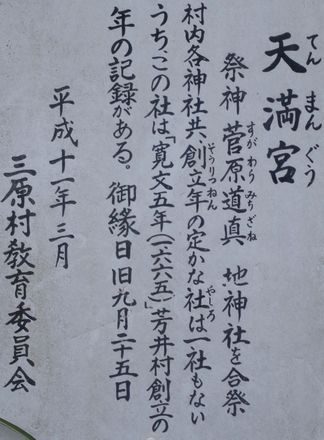 天満宮
てんまんぐう
祭神 菅原道真 地神社を合祭
すがわらみちざね
村内各神社共、創立年の定かな社は一社もない
そうりつねん
やしろ
うち、この社は「寛文五年(一六六五)」芳井村創立の
年の記録がある。 御縁日旧九月二十五日
平成十一年三月
三原村教育委員会